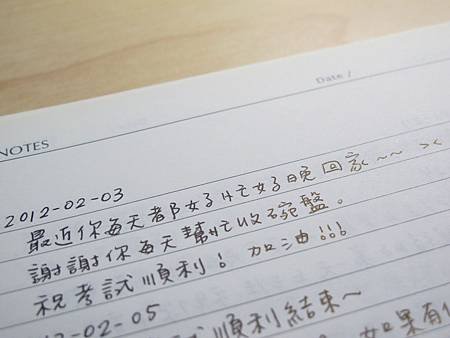 Date /
NOTES
2012-02-03
最近你每天都好忙好晚回家~~ ><
謝謝你每天幫忙收碗盤。
祝考試順利！加油!!!
02-05
試順利結束~
如果有